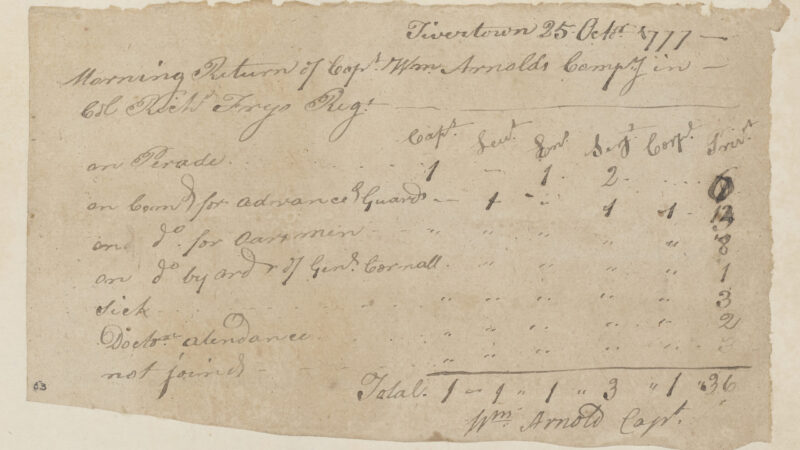 Tivertown 25 Octbr 1777 —
Morning Return of Capt Wm Arnolds Compy in —
Col Richd Frys Regt
Capt Leut Ens Sejt Corpl Privt
on Perade 1 — 1 2
on Comd for advance Guard — 1 " 1 1
on do for oarsmen " " " " " 8
on do by order of Genl Cornall " " " " " 1
Sick " " " " " 3
Doctors atendance " " " " " 2
not joind " " " " "
Total. 1 — 1 " 1 " 3 " 1 " 36
Wm Arnold Capt
63